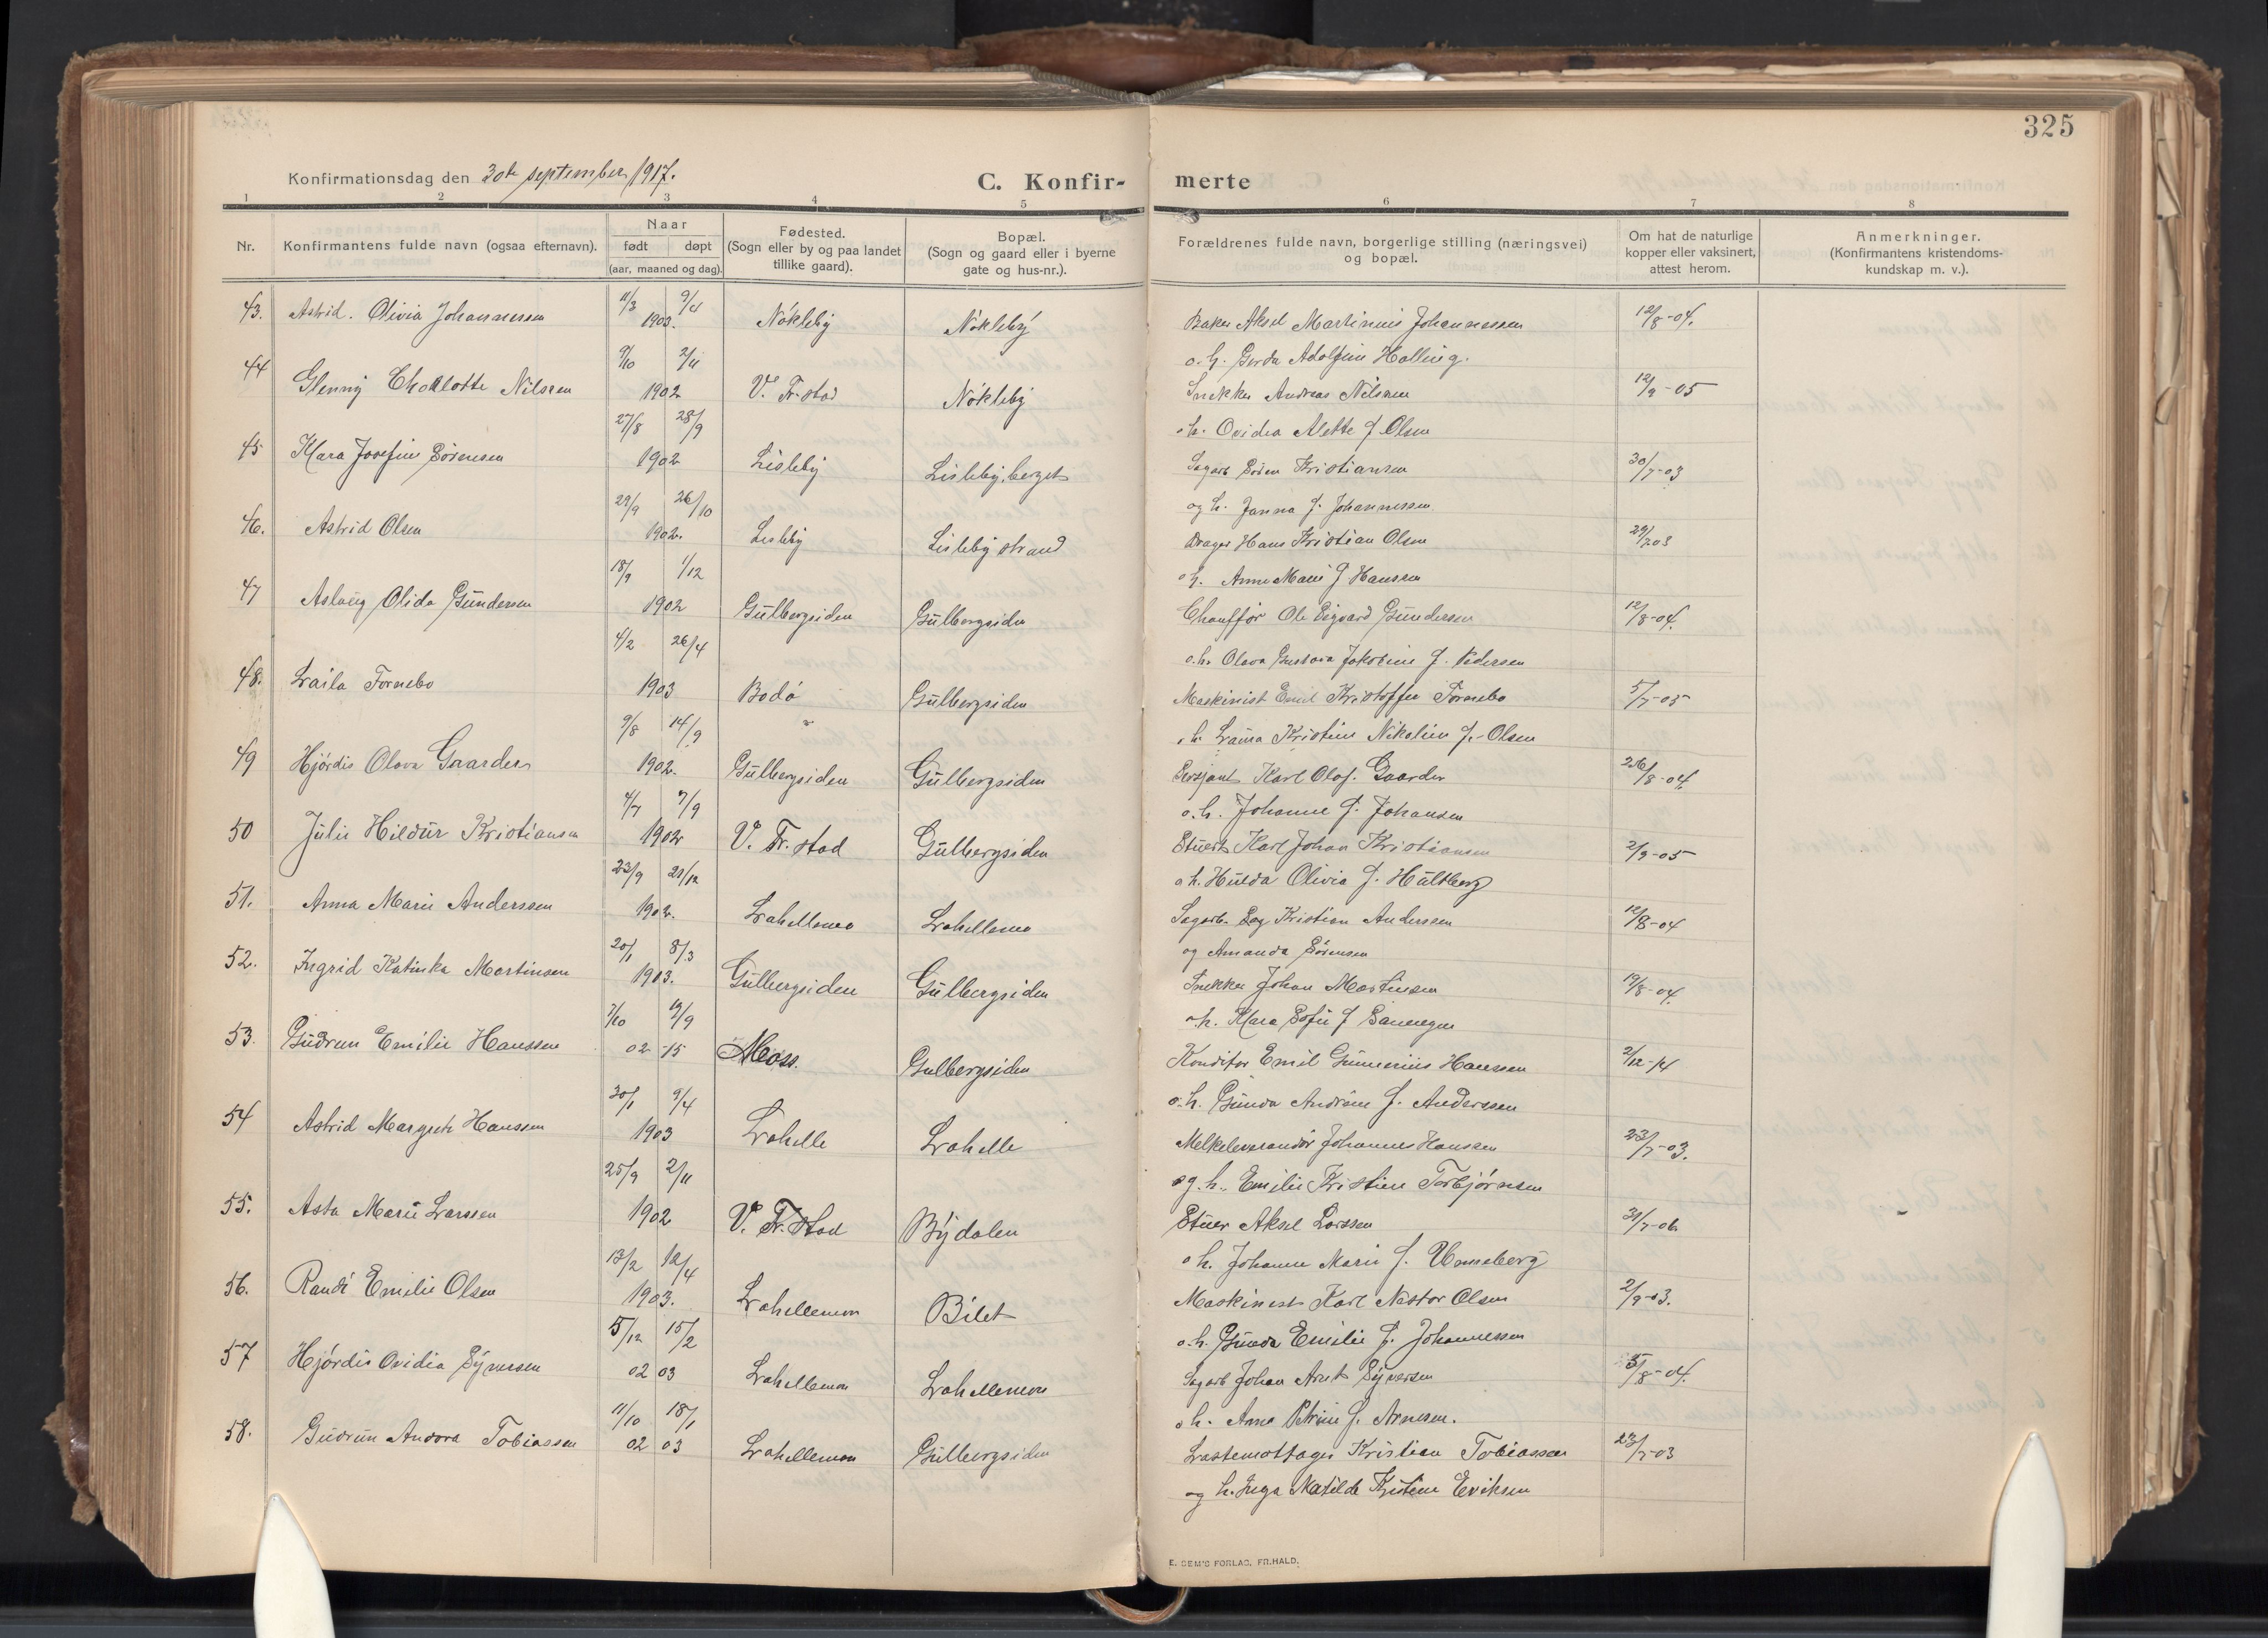 325
Konfirmationsdag den 30te september 1917. C. Konfir- merte
1 2 3 4 5 6 7 8
Nr. Konfirmantens fulde navn (ogsaa efternavn). Naar født døpt (aar, maaned og dag). Fødested. (Sogn eller by og paa landet tillike gaard). Bopæl. (Sogn og gaard eller i byerne gate og hus-nr.). Forældrenes fulde navn, borgerlige stilling (næringsvei) og bopæl. Om hat de naturlige kopper eller vaksinert, attest herom. Anmerkninger. (Konfirmantens kristendoms- kundskap m. v.).
43. Astrid. Olivia Johannessen 11/3 9/4 1903. Nökleby Nökleby Baker Aksel Martinius Johannessen 12/8-04.
o. h. Gerda Adolfine Holling.
44 Glenny Charlotte Nilssen 9/10 2/11 1902 V. Fr.stad Nökleby Snekker Andreas Nilssen 12/9-05
o h. Ovidia Alette f Olsen
45 Klara Josefine Sörensen 27/8 28/9 1902 Lisleby Lisleby.berget Sagarb Sören Kristiansen 30/7-03
og h. Janna f. Johannessen
46. Astrid Olsen 29/9 26/10 1902. Lisleby Lisleby strand Drager Hans Kristian Olsen 29/7 03
o h. Anne Marie f Hanssen
47 Aslaug Olida Gundersen 18/9 1/12 1902 Gulbergsiden Gulbergsiden Chauffør Ole Sigvard Gundersen 12/8-04.
o. h. Olava Gustava Jakobine f. Pedersen
48. Laila Fornebo 4/2 26/4 1903 Bodö Gulbergsiden Maskinist Emil Kristoffer Fornebo 5/7-05
o h. Laura Kristine Nikoline f. Olsen
49 Hjördis Olava Gaarder 9/8 14/9 1902. Gulbergsiden Gulbergsiden Sersjant Karl Olaf. Gaarder 26/8-04
o. h. Johanne f. Johansen
50 Julie Hildur Kristiansen 4/7 7/9 1902 V. Fr. stad Gulbergsiden Stuert Karl Johan Kristiansen 2/9-05
o h. Hulda Olivia f. Hultberg
51. Anna Marie Anderssen 23/9 21/12 1902. Lahellemo Lahellemo Sagarb. Kristian Anderssen 12/8-04
og Amanda Sörensen
52. Ingrid Katinka Martinsen 20/1 8/3 1903. Gulbergsiden Gulbergsiden Snekker Johan Martinsen 19/8-04.
o. h. Klara Sofie f
53. Gudrun Emilie Hanssen 7/10 02 19/9 15 Moss. Gulbergsiden Konditor Emil Gunerius Hanssen 2/12-14
o. h. Gunda Andrine f. Anderssen
54 Astrid Margrete Hanssen 30/1 9/4 1903 Lahelle Lahelle Melkeleverandör Johannes Hanssen 23/7-03.
og h. Emilie Kristine Torbjörnsen
55. Asta Marie Larssen 25/9 2/11 1902 V. Fr. Stad Bydalen Stuer Aksel Larssen 31/7-06
o h. Johanne Marie f. Unneberg
56. Randi Emilie Olsen 13/2 12/4 1903. Lahellemon Bilet Maskinist Karl Nestor Olsen 2/9-03.
o. h. Gunda Emilie f. Johannessen
57 Hjördis Ovidia Syversen 5/12 02 15/2 03 Lahellemon Lahellemon Sagarb Johan Arnt Syversen 5/8-04.
o h. Anna Petrine f. Arnesen.
58. Gudrun Andora Tobiassen 11/10 02 18/1 03 Lahellemon Gulbergsiden Lastemottager Kristian Tobiassen 23/7-03
og h. Inga Matilde Kristine Eriksen
E. SEM'S FORLAG, FR.HALD.